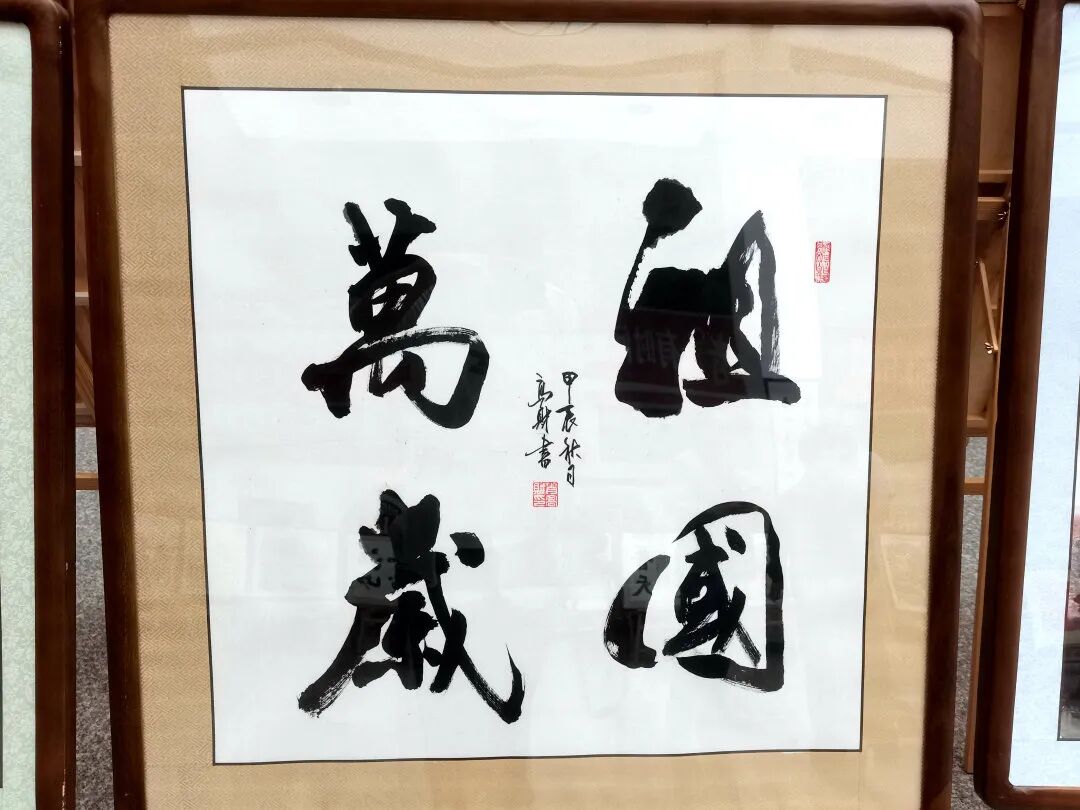 祖國
萬歲
甲辰秋月
高財書